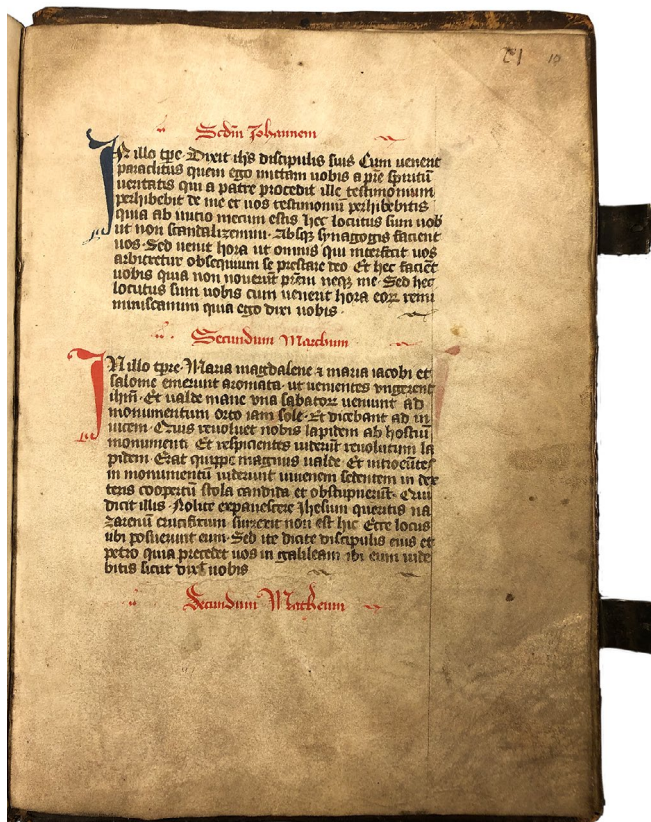 10
Scdm Johannem
In illo tpe Dixit ihs discipulis suis Cum uenerit
paraclitus quem ego mittam uobis a pre spiritū
ueritatis qui a patre procedit ille testimonium
perhibebit de me et uos testimonium perhibebitis
quia ab inicio mecum estis hec locutus sum uob
ut non scandalizemini Absq synagogis facient
uos Sed uenit hora ut omnis qui interficit uos
arbitretur obsequium se prestare deo Et hec faciēt
uobis quia non nouerūt prēm neq me Sed hec
locutus sum uobis cum uenerit hora eoꝝ remi
niscamini quia ego dixi uobis
Secundum Marchum
IN illo tpre Maria magdalene ⁊ maria iacobi et
salome emerunt aromata ut uenientes vngerent
ihm Et ualde mane vna sabatoꝝ ueniunt ad
monumentum orto iam sole Et dicebant ad in
uicem Quis reuoluet nobis lapidem ab hostiū
monumenti Et respicientes uiderūt reuolutum la
pidem Erat quippe magnus ualde Et introeūtes
in monumentū uiderunt iuuenem sedentem in dex
teris coopertū stola candida et obstupuerūt Qui
dicit illis Nolite expauescere Jhesum queritis na
zarenū crucifixum surrexit non est hic Ecce locus
ubi posuerunt eum Sed ite dicite discipulis eius et
petro quia precedet uos in galileam ibi eum uide
bitis sicut dixit uobis
Secundum Matheum